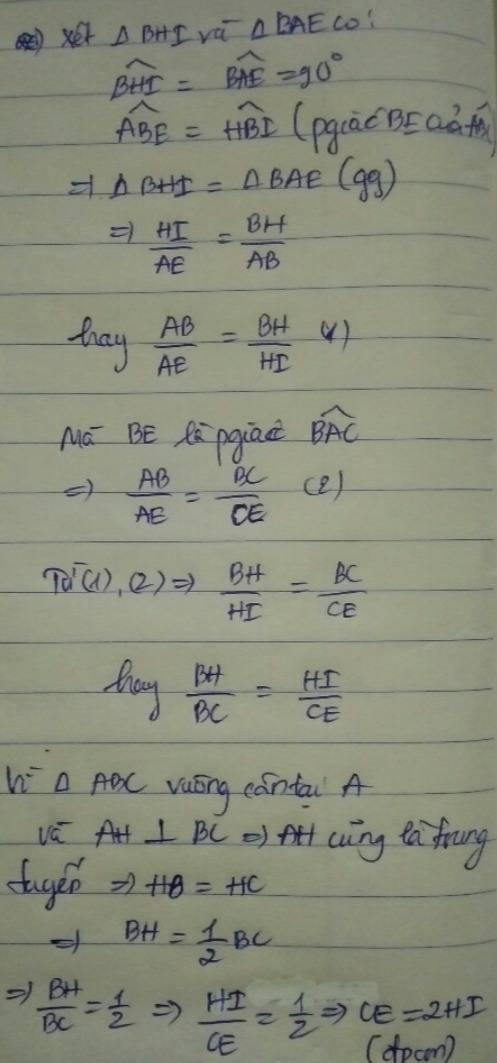 xét Δ BHI và Δ BAE có:
\widehat{BHI} = \widehat{BAE} = 90°
\widehat{ABE} = \widehat{HBI} (pgiác BE của \widehat{ABC})
=> Δ BHI = Δ BAE (gg)
=> HI/AE = BH/AB
hay AB/AE = BH/HI (1)
Mà BE là pgiác \widehat{BAC}
=> AB/AE = BC/CE (2)
Từ (1), (2) => BH/HI = BC/CE
hay BH/BC = HI/CE
Vì Δ ABC vuông cân tại A
và AH ⊥ BC => AH cũng là trung
tuyến => HB = HC
=> BH = 1/2 BC
=> BH/BC = 1/2 => HI/CE = 1/2 => CE = 2HI
(đpcm)